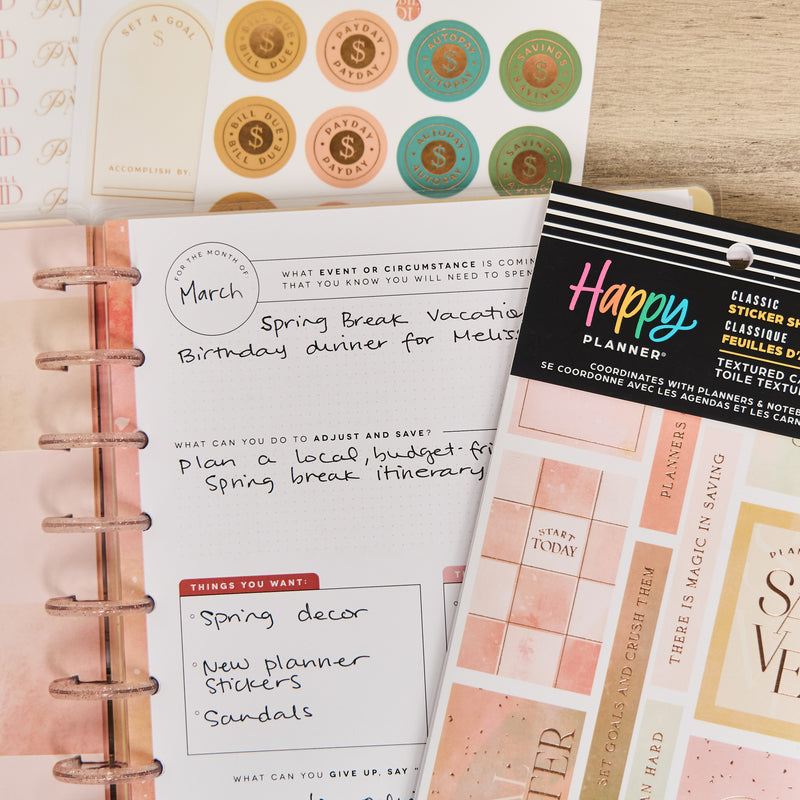 SET A GOAL
$
ACCOMPLISH BY:
BILL DUE
$
BILL DUE
PAYDAY
$
PAYDAY
AUTOPAY
$
AUTOPAY
SAVINGS
$
SAVINGS
BILL DUE
$
BILL DUE
PAYDAY
$
PAYDAY
AUTOPAY
$
AUTOPAY
SAVINGS
$
SAVINGS
FOR THE MONTH OF
March
WHAT EVENT OR CIRCUMSTANCE IS
THAT YOU KNOW YOU WILL NEED TO
Spring Break
Birthday dinner for
WHAT CAN YOU DO TO ADJUST AND SAVE?
plan a local, budget-
Spring break itinerary
THINGS YOU WANT:
Spring decor
New planner
Stickers
Sandals
WHAT CAN YOU GIVE UP, SAY "
Happy
PLANNER®
CLASSIC
STICKER
CLASSIQUE
FEUILLES
TEXTURED
TOILE
COORDINATES WITH PLANNERS &
SE COORDONNE AVEC LES AGENDAS ET LES
PLANNERS
START
TODAY
THERE IS MAGIC IN SAVING
SET GOALS AND CRUSH THEM
HARD